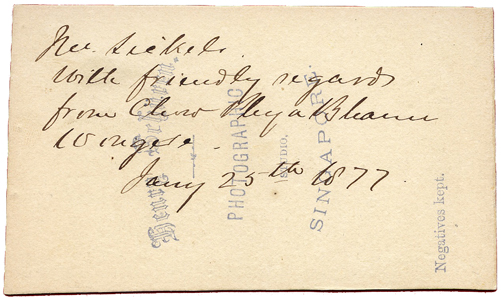 Mr. Sickels.
With friendly regards
from Chow Phya Bhanu
Wongse.
Jany 25th 1877
Henry
PHOTOGRAPHIC
STUDIO,
SINGAPORE.
Negatives kept.